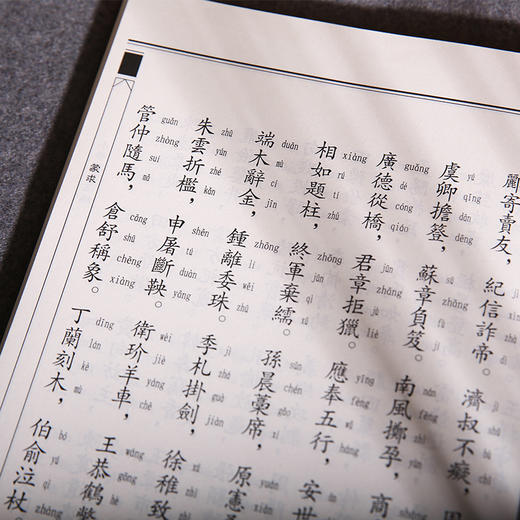 寄賣友，紀信詐帝。濟叔不癡，
jì mài yǒu jǐ xìn zhà dì jì shū bù chī
虞卿擔簦，蘇章負笈。南風擲孕，商
yú qīng dān dēng sū zhāng fù jí nán fēng zhì yùn shāng
廣德從橋，君章拒獵。應奉五行，安世
guǎng dé cóng qiáo jūn zhāng jù liè yīng fèng wǔ xíng ān shì
相如題柱，終軍棄繻。孫晨藁席，原憲
xiàng rú tí zhù zhōng jūn qì rú sūn chén gǎo xí yuán xiàn
端木辭金，鍾離委珠。季札掛劍，徐稚致
duān mù cí jīn zhōng lí wěi zhū jì zhá guà jiàn xú zhì zhì
朱雲折檻，申屠斷鞅。衛玠羊車，王恭鶴氅
zhū yún zhé kǎn shēn tú duàn yāng wèi jiè yáng chē wáng gōng hè chǎng
管仲隨馬，倉舒稱象。丁蘭刻木，伯俞泣杖。
guǎn zhòng suí mǎ cāng shū chēng xiàng dīng lán kè mù bó yú qì zhàng
蒙求